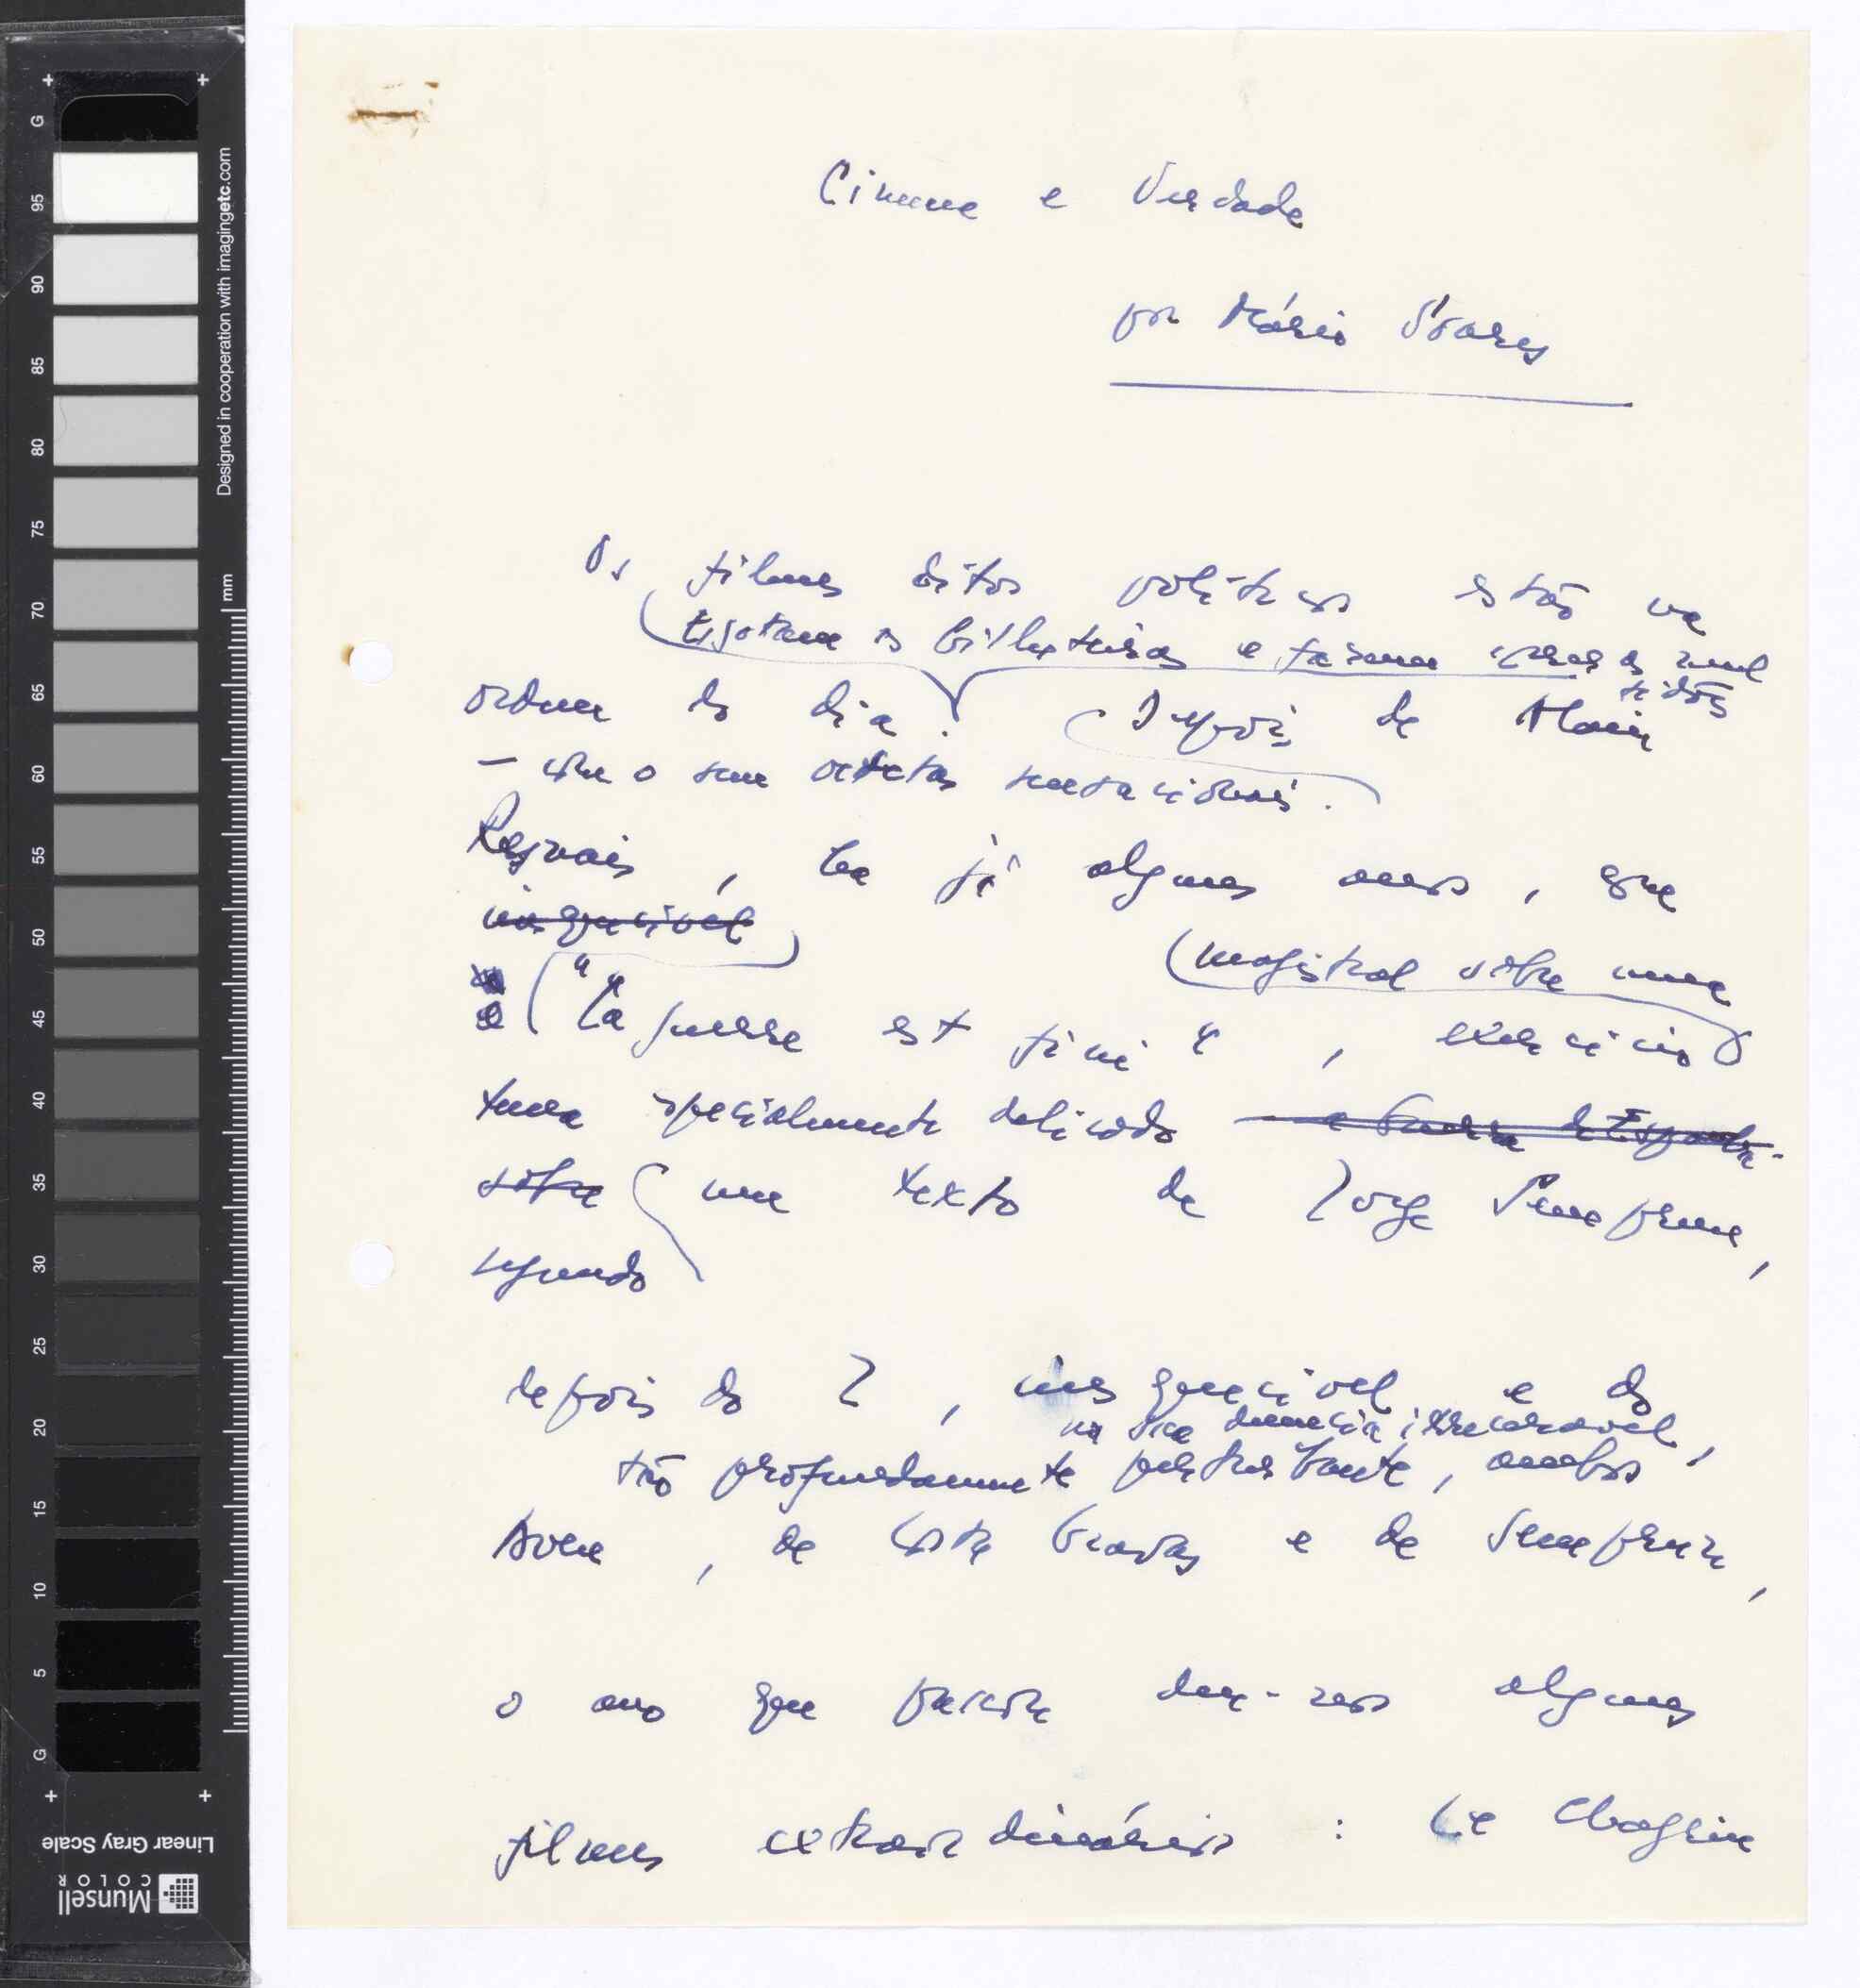 Cinema e Verdade
por Mário Soares
Os filmes ditos políticos estão na
Esgotam as bilheteiras e fazem correr as mul
tidões
ordem do dia. Depois de Alain
sensacionais.
Resnais, há já alguns anos, que
inesquecível
magistral sôbre um
"La guerre est fini", exercício
tema especialmente delicado a Guerra de Espanha
sôbre um texto de Jorge Semprum,
segundo
depois do Z, inesquecível e do
na sua denúncia
tão profundamente perturbante, ambos
Aveu, de Costa Gravas e de Semprun,
o ano que passou deu-nos alguns
filmes extraordinários: Le Chagrin
Designed in cooperation with imagingetc.com
mm
G
95
90
85
80
75
70
65
60
55
50
45
40
35
30
25
20
15
10
5
G
Linear Gray Scale
Munsell
COLOR